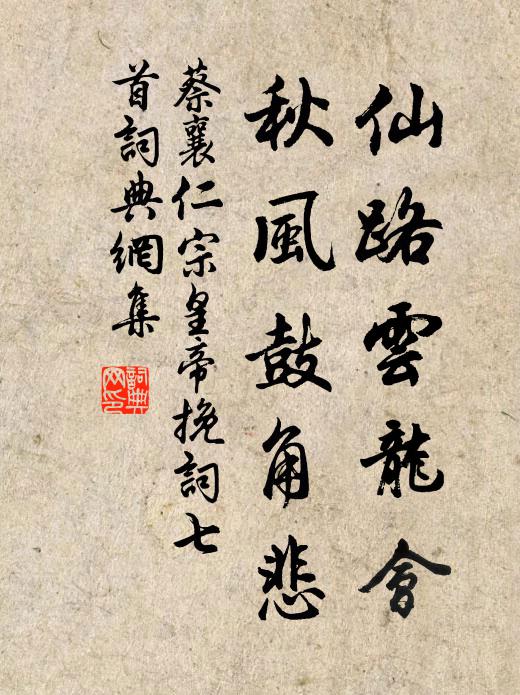 仙路雲龍會
秋風鼓角悲
蔡襄仁宗皇帝挽詞七
首詞典網集
詞典
网印